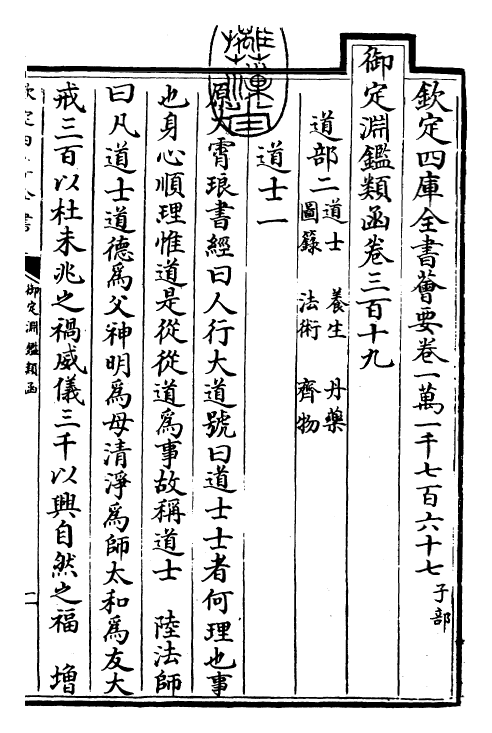 欽定四庫全書薈要卷一萬一千七百六十七 子部
御定淵鑑類函卷三百十九
道部二 道士 養生 丹藥 圖籙 法術 齊物
道士一
原大霄琅書經曰人行大道號曰道士士者何理也事
也身心順理惟道是從從道為事故稱道士 陸法師
曰凡道士道德為父神明為母清淨為師太和為友大
戒三百以杜未兆之禍威儀三千以興自然之福 增
御定淵鑑類函
一